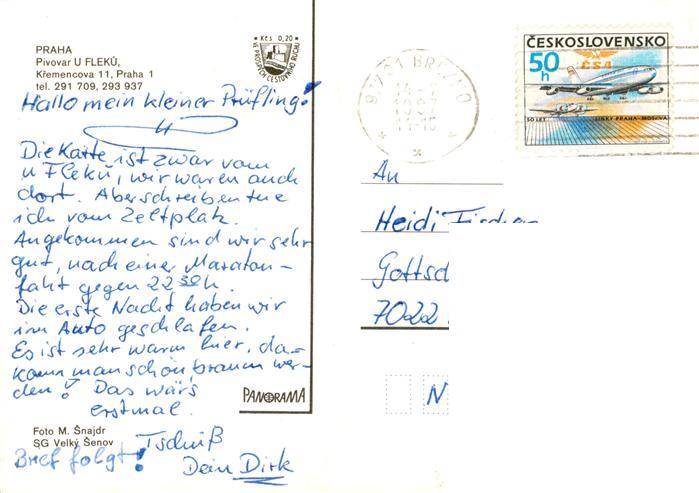 PRAHA
Pivovar U FLEKŮ,
Křemencova 11, Praha 1
tel. 291 709, 293 937
Kčs 0,20
VE PROSPĚCH CESTOVNÍHO RUCHU
Hallo mein kleiner Prüfling!
Die Karte ist zwar vom
u Fleku, wir waren auch
dort. Aber schreiben tue
ich vom Zeltplatz.
Angekommen sind wir sehr
gut, nach einer Maraton-
fahrt gegen 22 30 h.
Die erste Nacht haben wir
im Auto geschlafen.
Es ist sehr warm hier, da-
kann man schön braun wer-
den! Das wär's
erstmal.
Tschüß
Dein Dirk
Brief folgt!
Foto M. Šnajdr
SG Velký Šenov
PANORAMA
ČESKOSLOVENSKO
50 h
ČSA
50 LET
LINKY PRAHA-MOSKVA
977 01 BREZNO
An
Heidi
Gottsc
7022
N